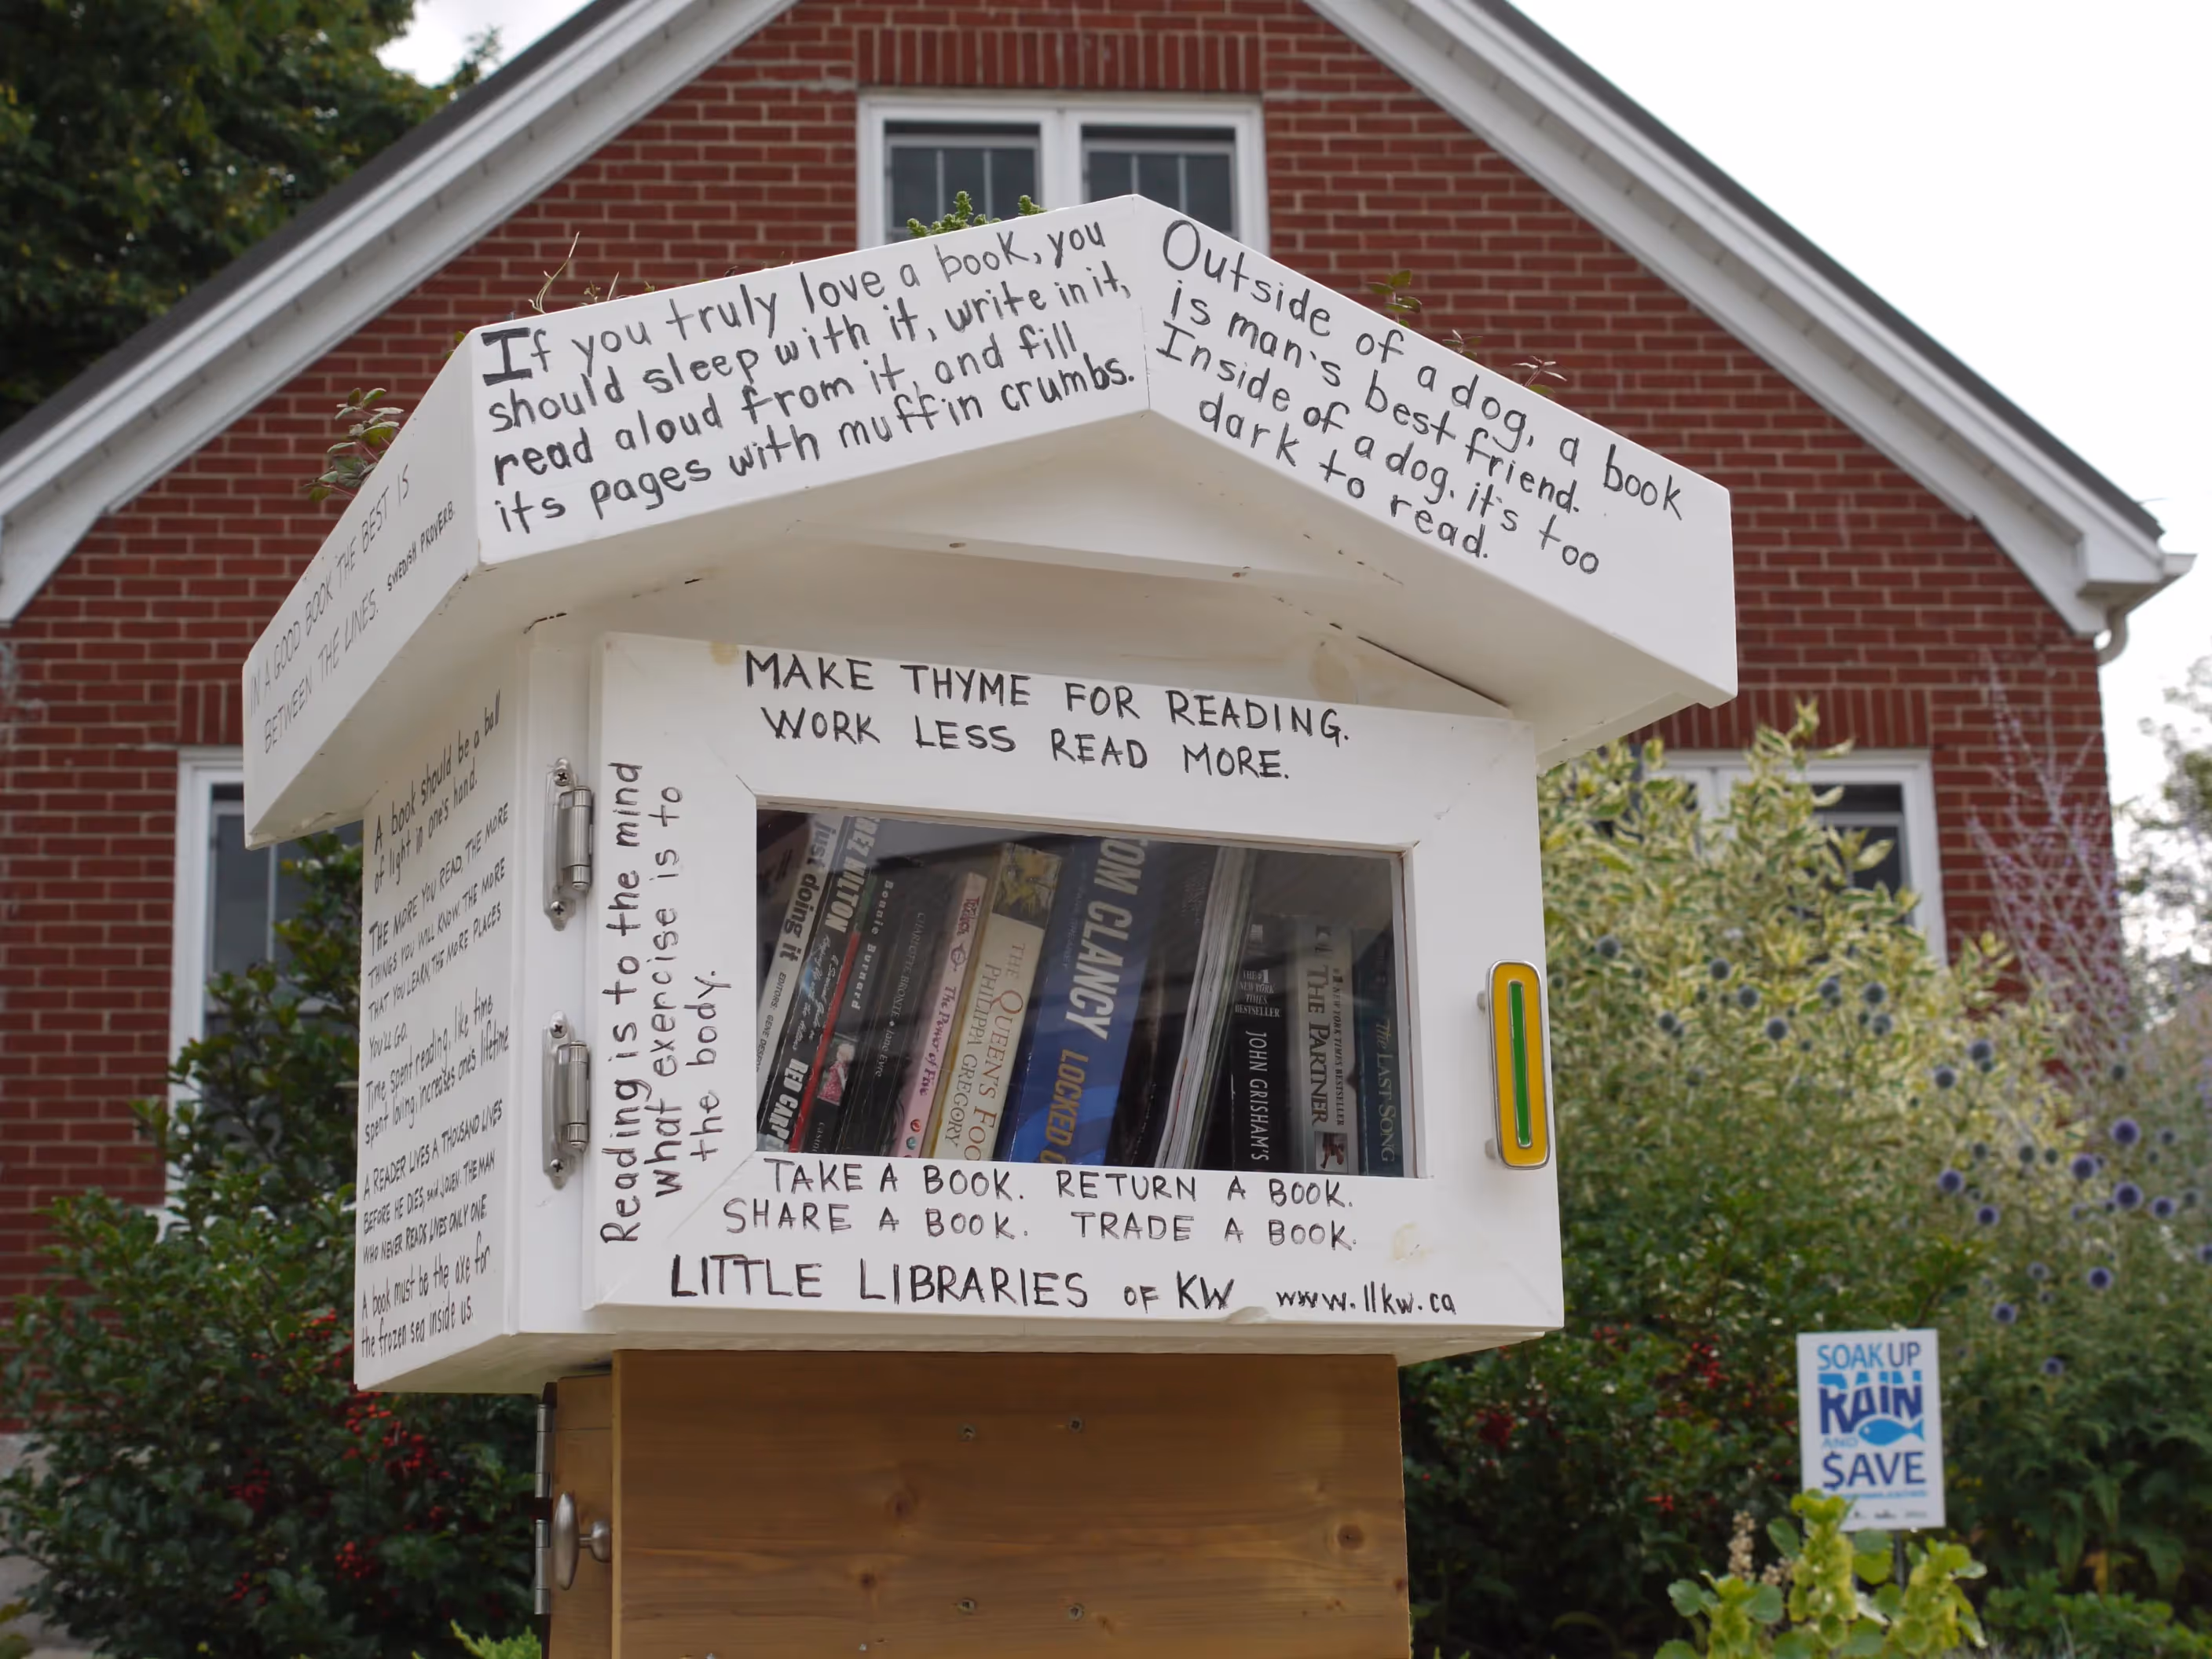 If you truly love a book, you
should sleep with it, write in it,
read aloud from it, and fill
its pages with muffin crumbs.
Outside of a dog, a book
is man's best friend.
Inside of a dog, it's too
dark to read.
IN A GOOD BOOK THE BEST IS
BETWEEN THE LINES. SWEDISH PROVERB.
A book should be a ball
of light in one's hand.
THE MORE YOU READ, THE MORE
THINGS YOU WILL KNOW. THE MORE
THAT YOU LEARN, THE MORE PLACES
YOU'LL GO.
Time spent reading, like time
spent loving, increases one's lifetime
A READER LIVES A THOUSAND LIVES
BEFORE HE DIES, said JOJEN. THE MAN
WHO NEVER READS LIVES ONLY ONE
A book must be the axe for
the frozen sea inside us.
MAKE THYME FOR READING.
WORK LESS READ MORE.
Reading is to the mind
what exercise is to
the body.
just doing it
EDITORS: GENE
REZ HILTON
Bonnie Burnard
CHARLOTTE BRONTE • Jane Eyre
The Power of Five
THE QUEEN'S FOO
PHILIPPA GREGORY
TOM CLANCY
LOCKED O
THE #1
NEW YORK
TIMES
BESTSELLER
JOHN GRISHAM'S
#1 NEW YORK TIMES BESTSELLER
THE PARTNER
THE LAST SONG
TAKE A BOOK. RETURN A BOOK.
SHARE A BOOK. TRADE A BOOK.
LITTLE LIBRARIES OF KW www.llkw.ca
SOAK UP
RAIN
AND
$AVE